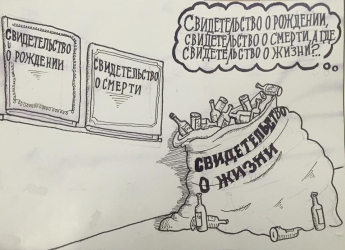 СВИДЕТЕЛЬСТВО
О РОЖДЕНИИ
СВИДЕТЕЛЬСТВО
О СМЕРТИ
СВИДЕТЕЛЬСТВО О РОЖДЕНИИ,
СВИДЕТЕЛЬСТВО О СМЕРТИ, А ГДЕ
СВИДЕТЕЛЬСТВО О ЖИЗНИ?..
СВИДЕТЕЛЬСТВО
О ЖИЗНИ